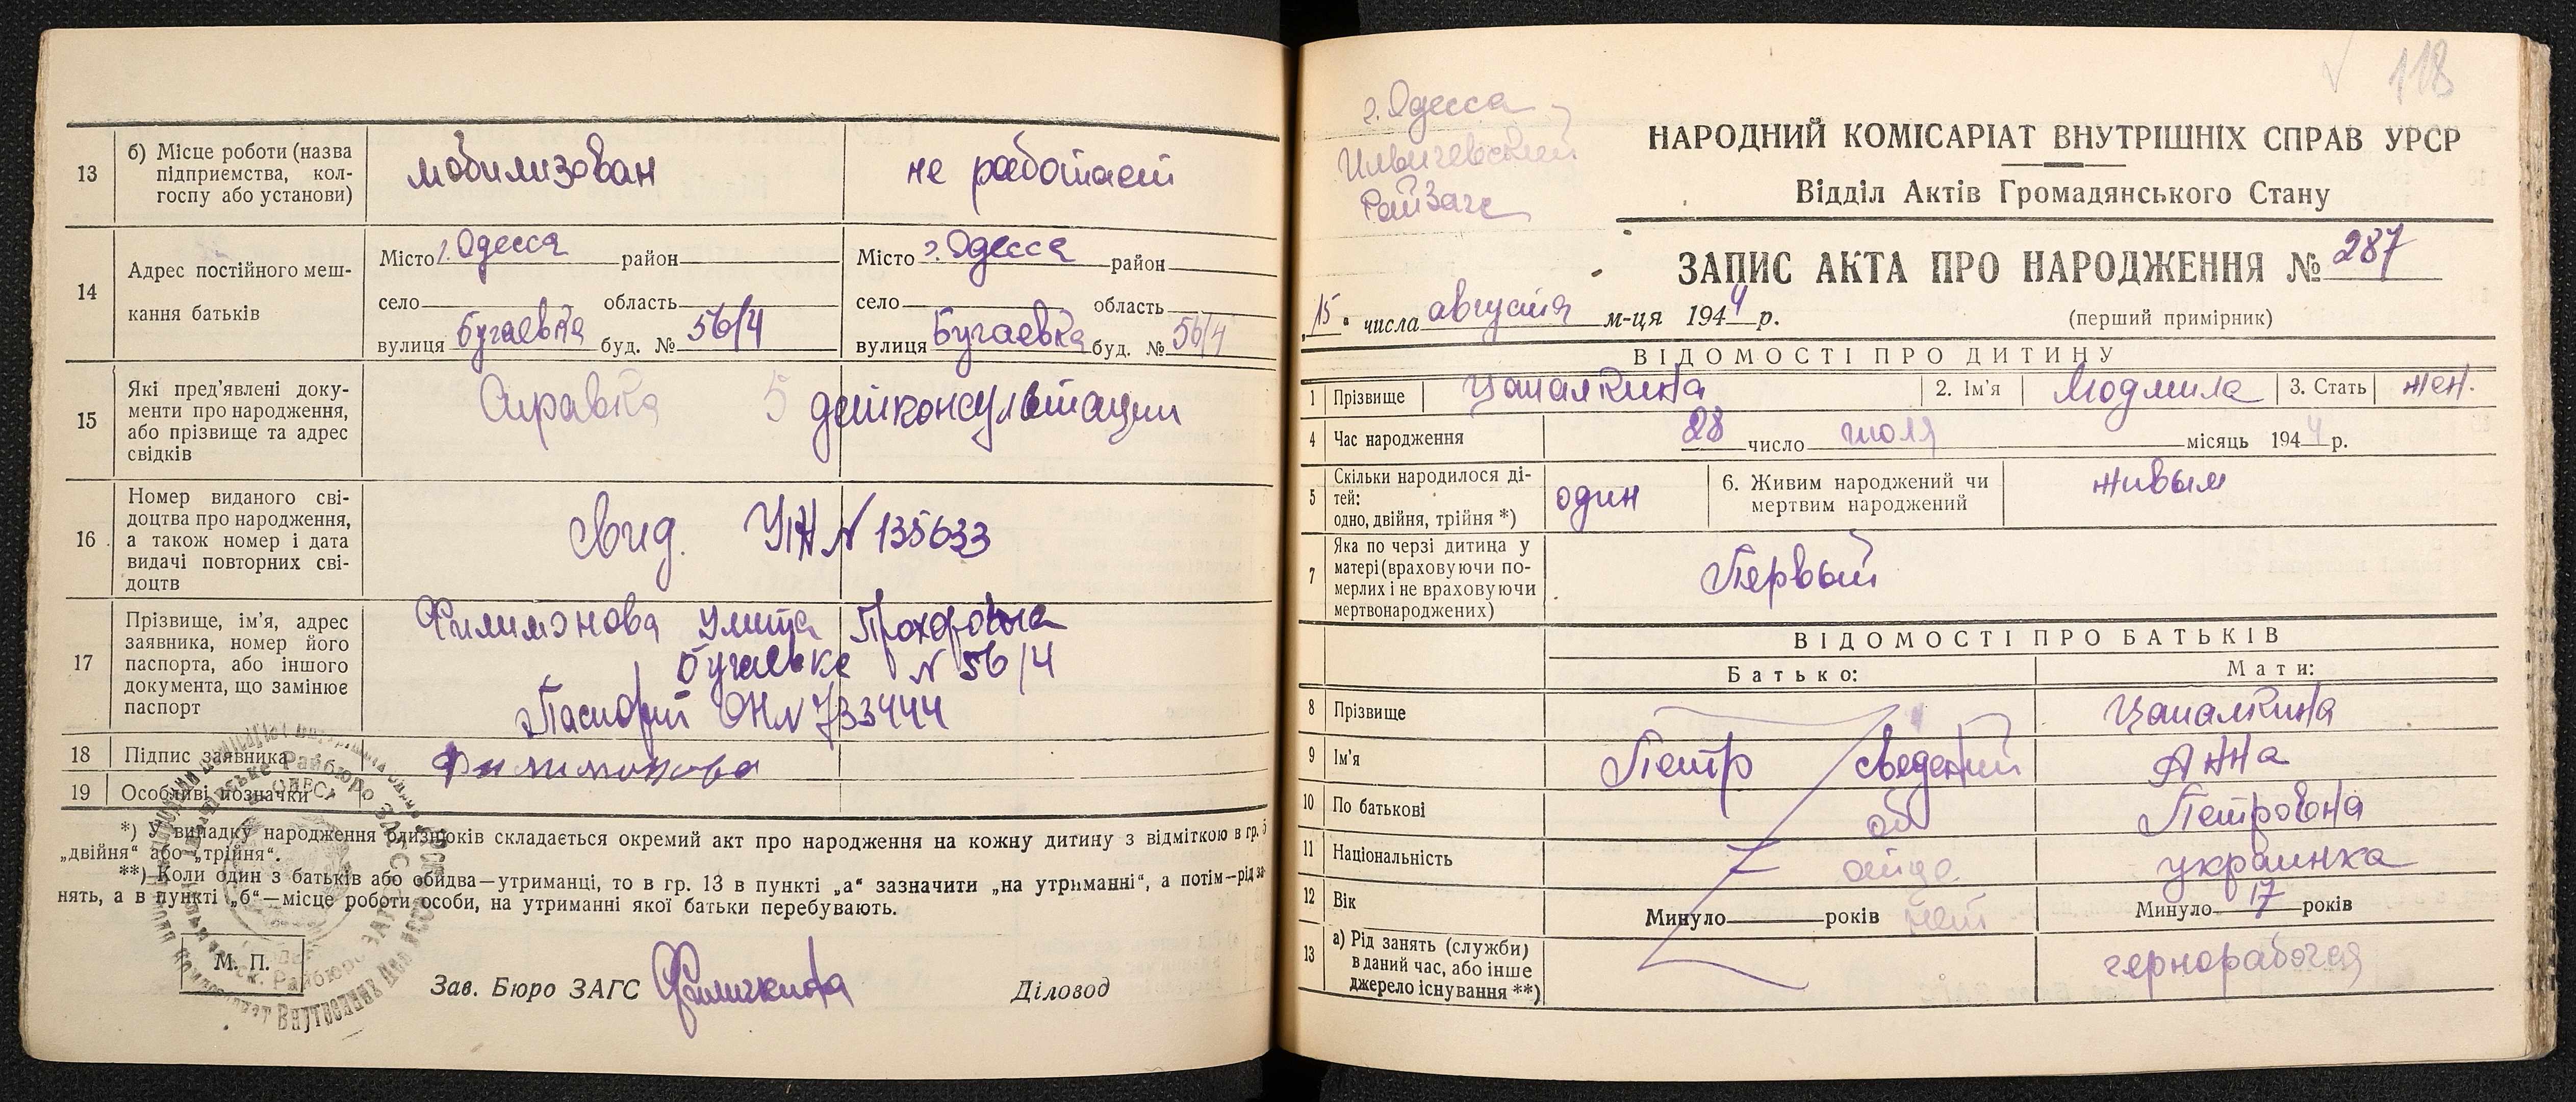 13
б) Місце роботи (назва
підприємства, кол-
госпу або установи)
мобилизован
не работает
14
Адрес постійного меш-
кання батьків
Місто г. Одесса район
село область
вулиця Бугаевка буд. № 56/4
Місто г. Одесса район
село область
вулиця Бугаевка буд. № 56/4
15
Які пред'явлені доку-
менти про народження,
або прізвище та адрес
свідків
Справка 5 детконсультации
16
Номер виданого сві-
доцтва про народження,
а також номер і дата
видачі повторних сві-
доцтв
свид. УЖ № 135633
17
Прізвище, ім'я, адрес
заявника, номер його
паспорта, або іншого
документа, що замінює
паспорт
Филимонова Улита Прохоровна
Бугаевка № 56/4
Паспорт ОН № 733444
18 Підпис заявника
Филимонова
19 Особливі позначки
*) У випадку народження близнюків складається окремий акт про народження на кожну дитину з відміткою в гр. 5
„двійня“ або „трійня“.
**) Коли один з батьків або обидва—утриманці, то в гр. 13 в пункті „а“ зазначити „на утриманні“, а потім—рід за-
нять, а в пункті „б“—місце роботи особи, на утриманні якої батьки перебувають.
М. П.
Зав. Бюро ЗАГС
Діловод
118
г. Одесса
Ильичевский
РайЗагс
НАРОДНИЙ КОМІСАРІАТ ВНУТРІШНІХ СПРАВ УРСР
Відділ Актів Громадянського Стану
ЗАПИС АКТА ПРО НАРОДЖЕННЯ № 287
„15“ числа августа м-ця 1944 р.
(перший примірник)
ВІДОМОСТІ ПРО ДИТИНУ
1 Прізвище Цапалкина 2. Ім'я Людмила 3. Стать жен.
4 Час народження 28 число июля місяць 1944 р.
5
Скільки народилося ді-
тей:
одно, двійня, трійня *)
один
6. Живим народжений чи
мертвим народжений
живым
7
Яка по черзі дитина у
матері (враховуючи по-
мерлих і не враховуючи
мертвонароджених)
Первый
ВІДОМОСТІ ПРО БАТЬКІВ
Батько: Мати:
8 Прізвище Цапалкина
9 Ім'я Петр сведений Анна
10 По батькові об Петровна
11 Національність отце украинка
12 Вік Минуло років нет Минуло 17 років
13
а) Рід занять (служби)
в даний час, або інше
джерело існування **)
чернорабочая